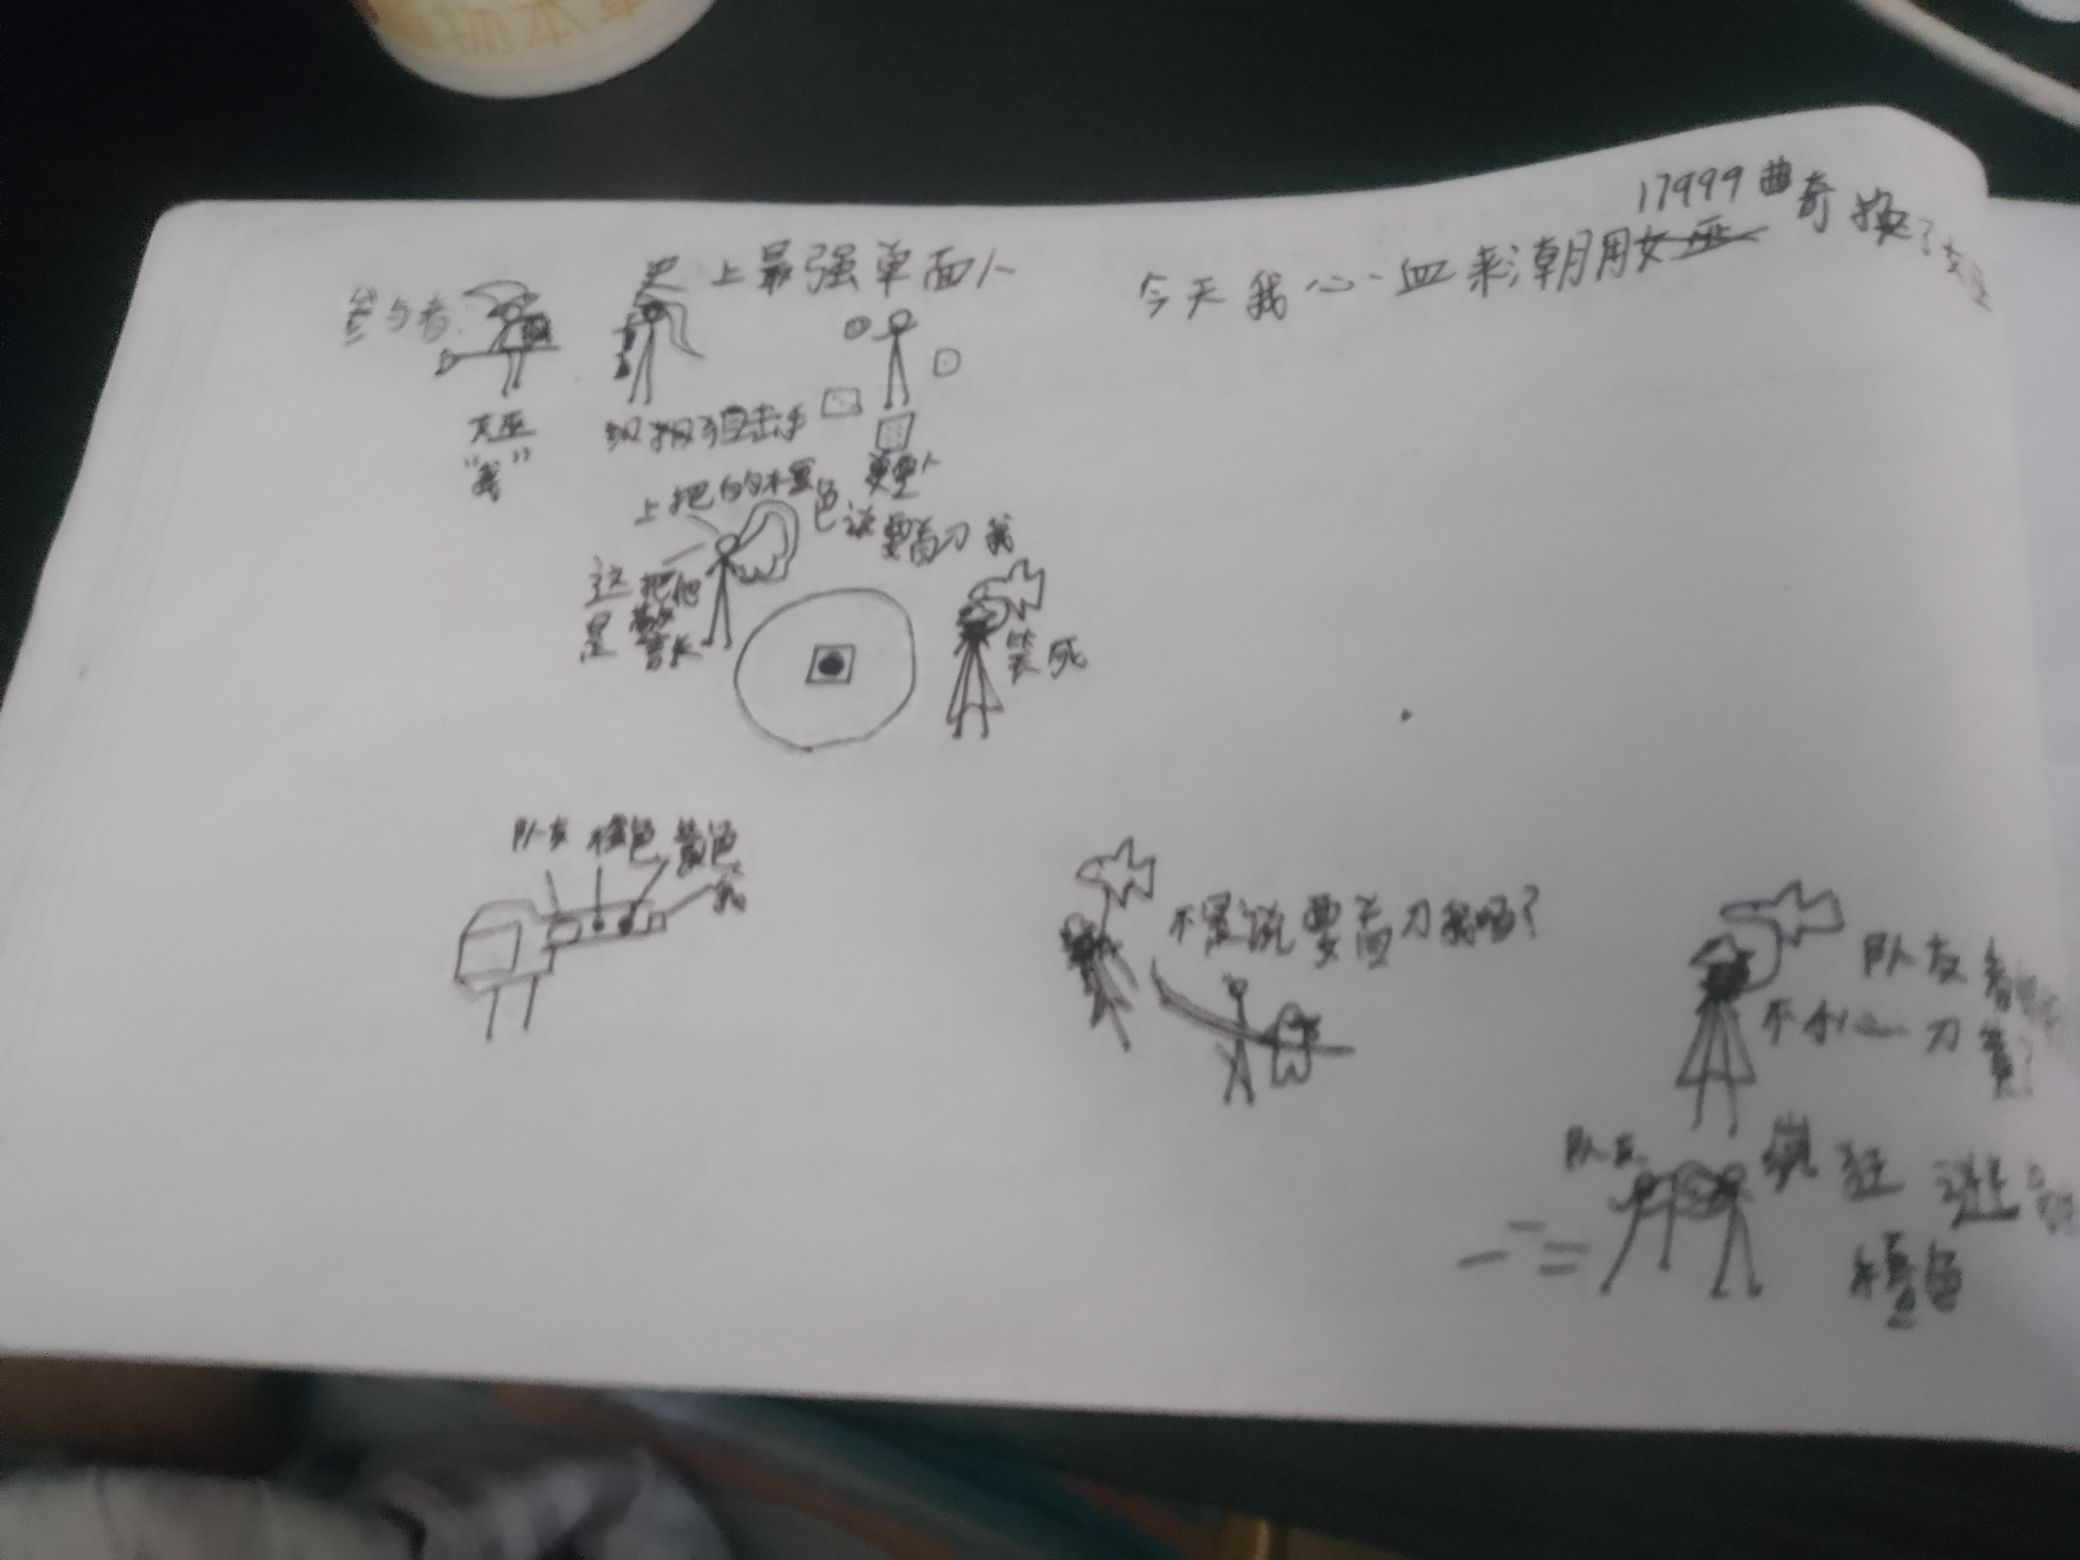 史上最强单面人
参与者:
天巫
"我"
狙击手
17999曲奇换了女巫
今天我心血来潮用女巫
上把的橙色说要首刀我
这把他
是警长
笑死
队友 橙色 黄色
我
不是说要首刀我吗?
队友
不小心刀黄?
队友 疯狂
橙色